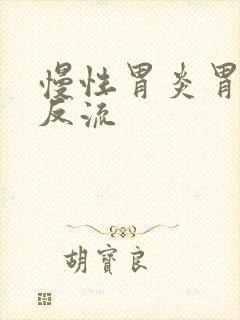 慢性胃炎胃
反流
胡寳良